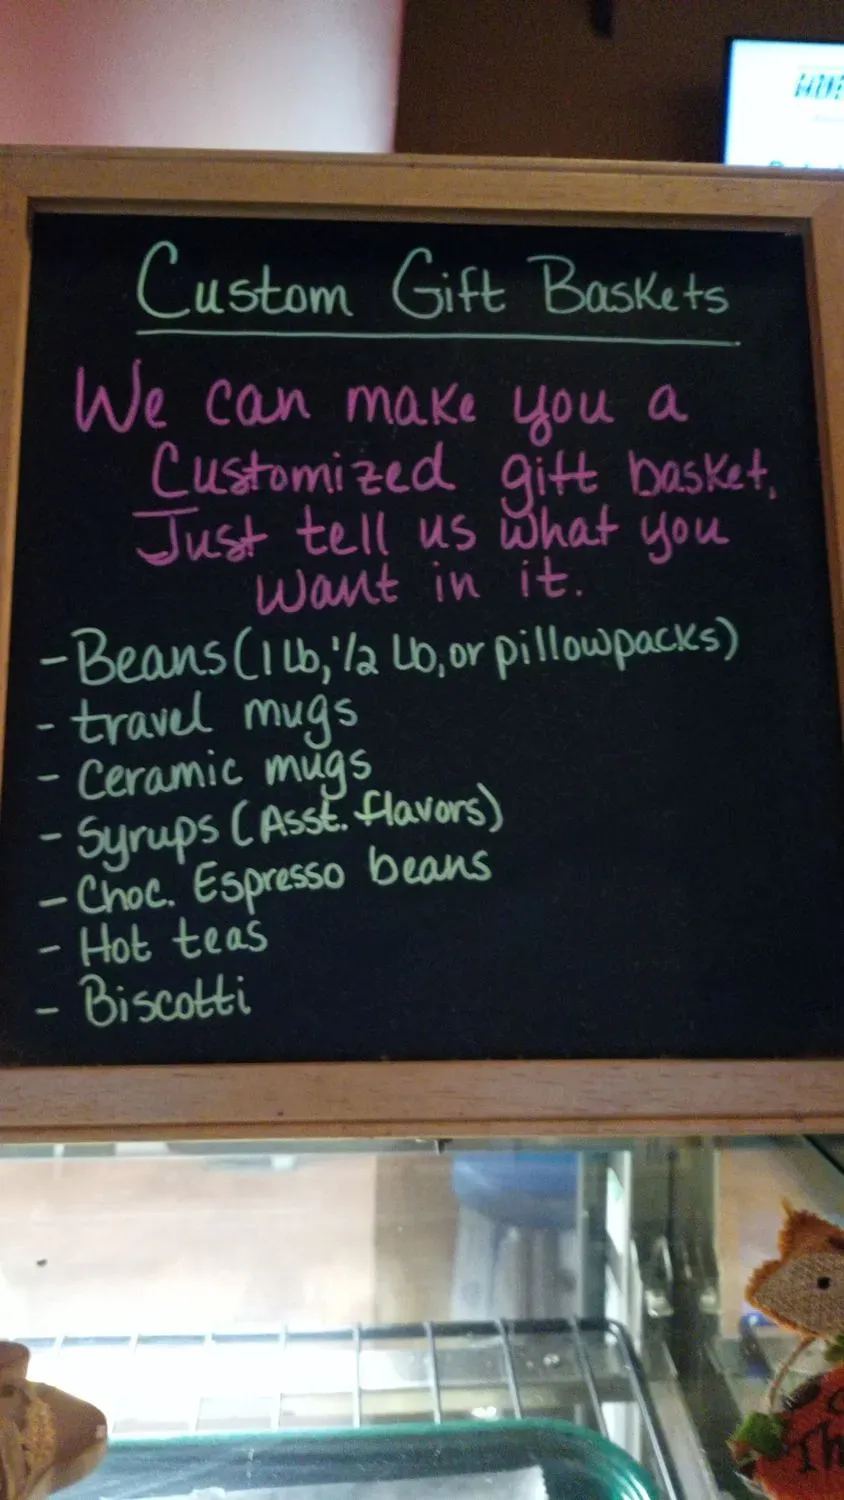 Custom Gift Baskets
We can make you a
Customized gift basket,
Just tell us what you
want in it.
- Beans (1 lb, 1/2 lb, or pillowpacks)
- travel mugs
- Ceramic mugs
- Syrups (Asst. flavors)
- Choc. Espresso beans
- Hot teas
- Biscotti